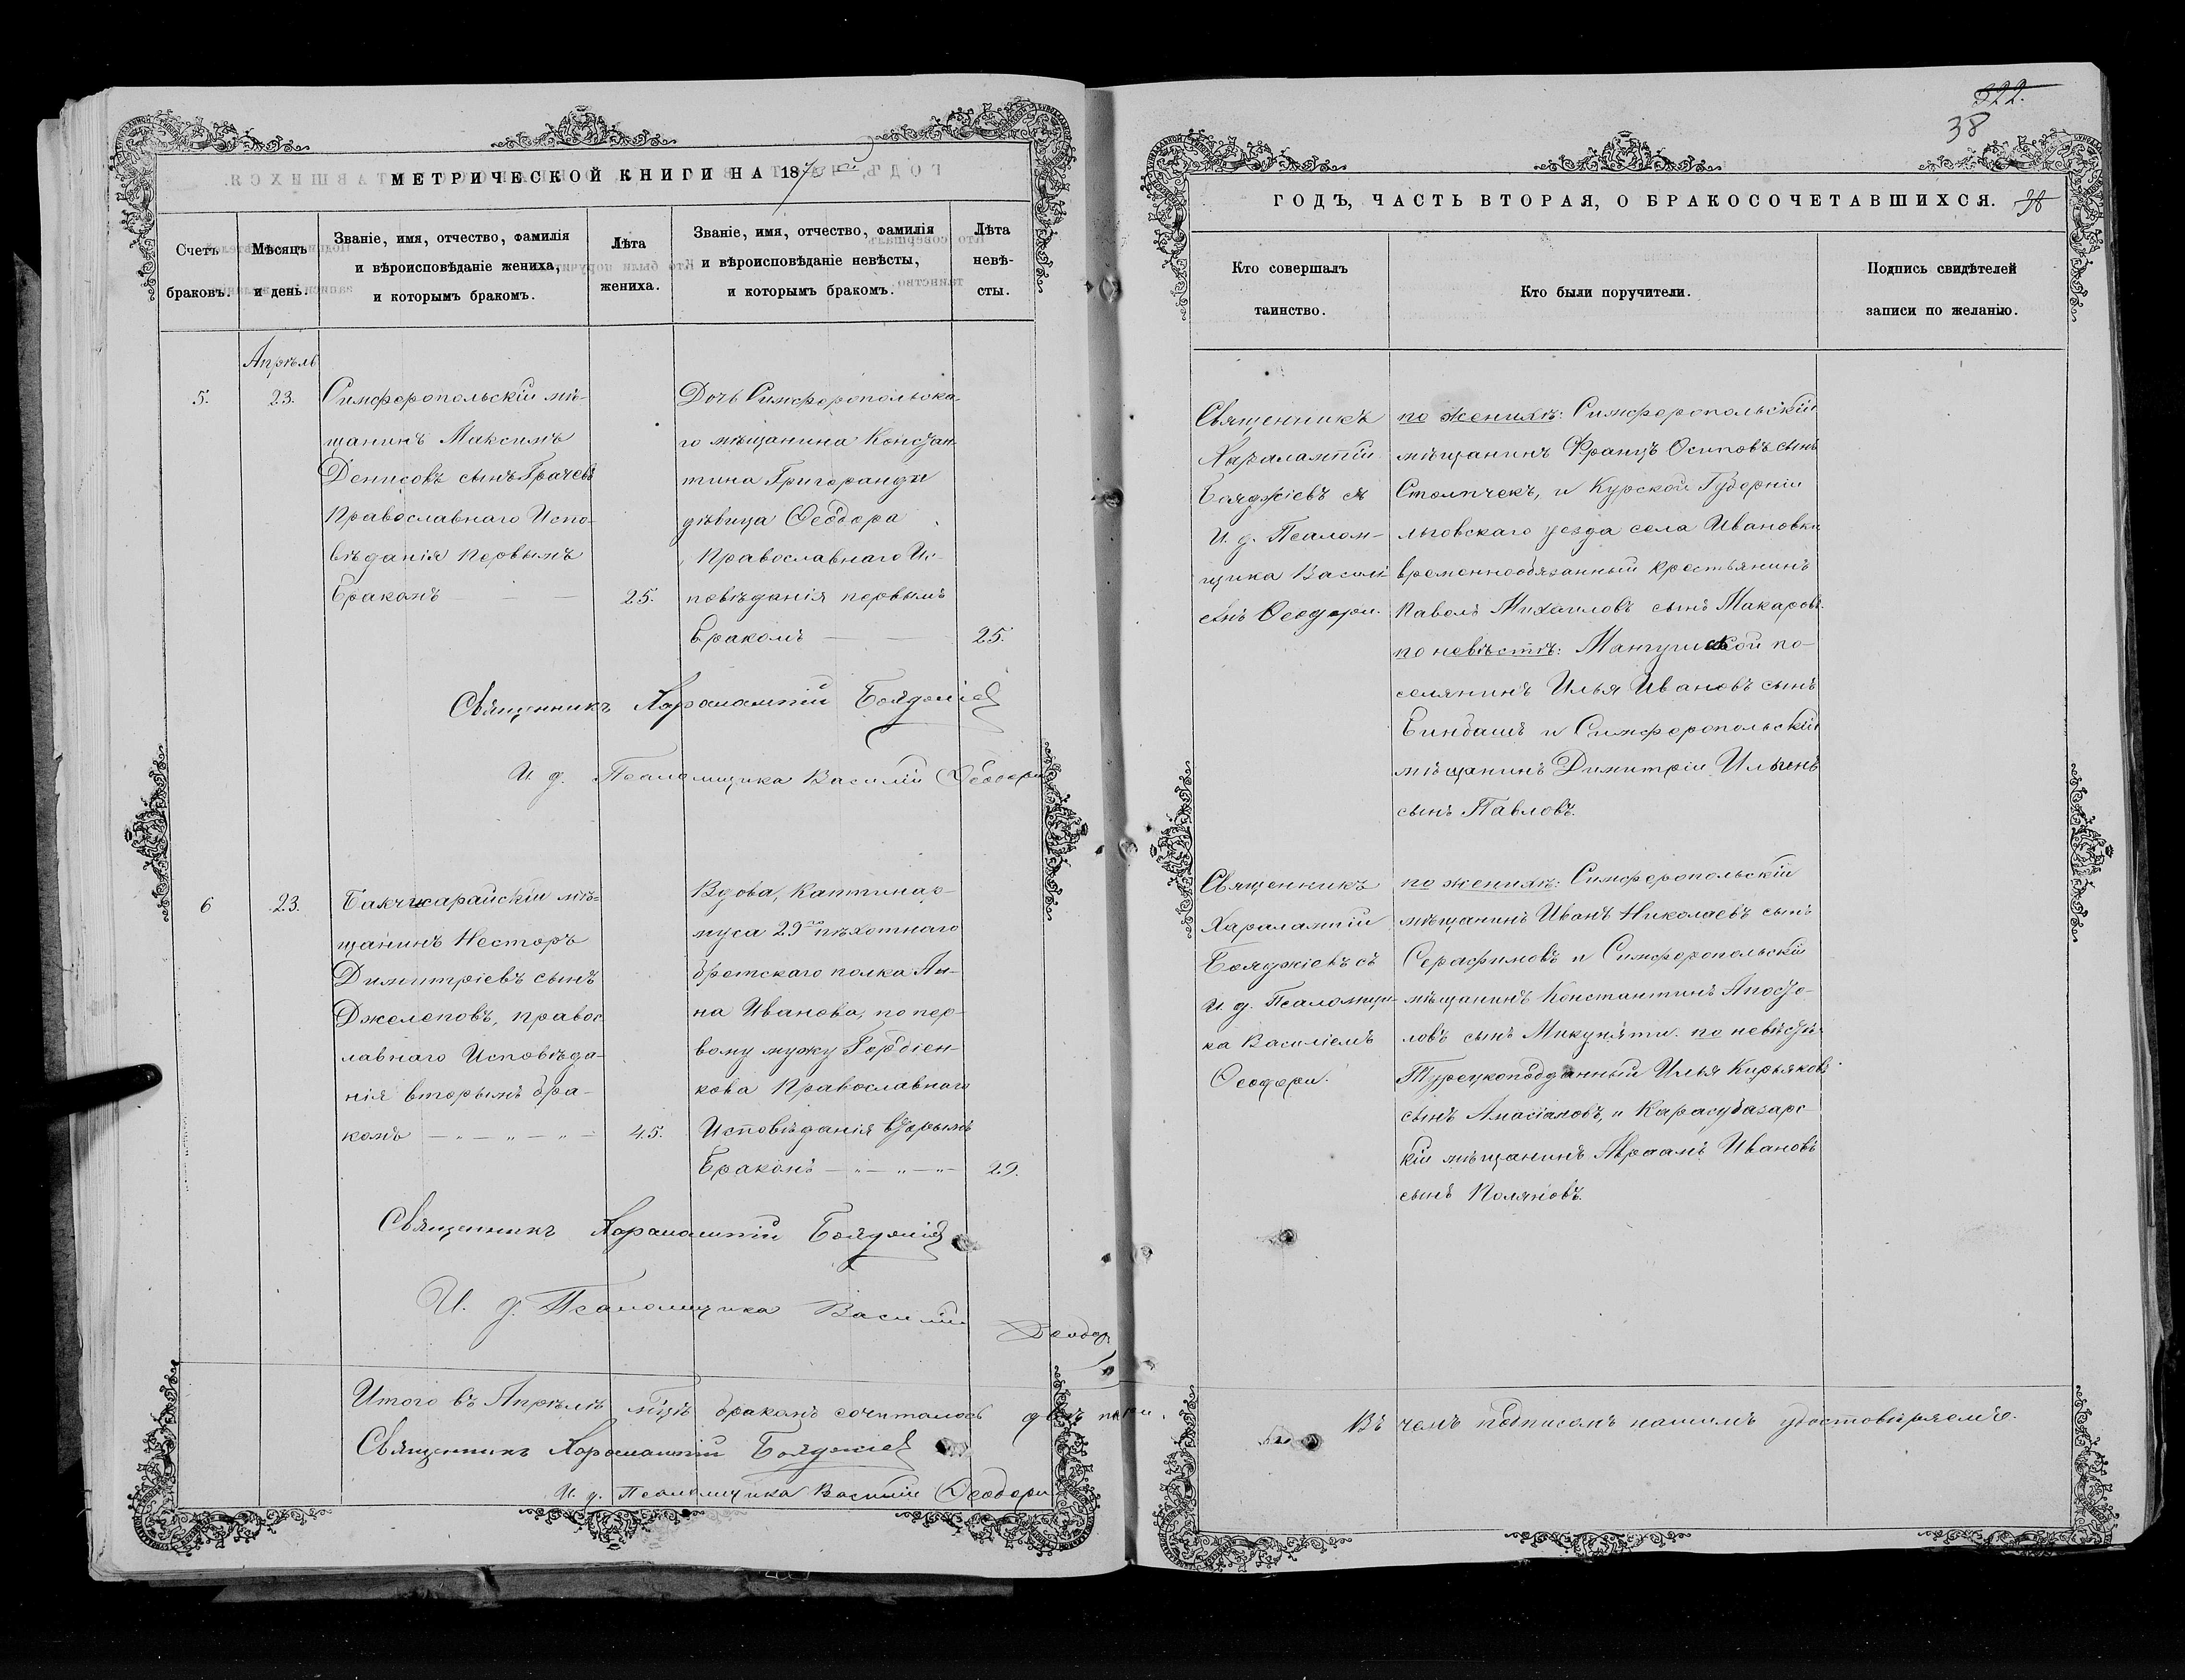 МЕТРИЧЕСКОЙ КНИГИ НА 187
Счетъ браковъ.
Мѣсяцъ и день.
Званіе, имя, отчество, фамилія
и вѣроисповѣданіе жениха,
и которымъ бракомъ.
Лѣта жениха.
Званіе, имя, отчество, фамилія
и вѣроисповѣданіе невѣсты,
и которымъ бракомъ.
Лѣта невѣ-
сты.
Апрѣль
5.
23.
Симферопольскій мѣ-
щанинъ Максимъ
Денисовъ сынъ Грачевъ
Православнаго Испо-
вѣданія первымъ
бракомъ
25.
Дочь Симферопольска-
го мѣщанина Констан
тина Григоранди
дѣвица Феодора
Православнаго Ис-
повѣданія первымъ
бракомъ
25.
Священникъ Харалампій Бояджіев
И д. Псаломщика Василій Феодори
6
23.
Бакчисарайскій мѣ-
щанинъ Несторъ
Димитріевъ сынъ
Джелеповъ, правос
лавнаго Исповѣда-
нія вторымъ бра-
комъ
45.
Вдова, Каптинар-
муса 29го пѣхотнаго
брестскаго полка Ан-
на Иванова, по пер-
вому мужу Гордіен-
кова Православнаго
Исповѣданія вторымъ
бракомъ
29.
Священникъ Харалампій Бояджіев
И. д. Псаломщика Василій
Феодор
Итого въ Апрѣлѣ мцѣ бракомъ сочиталось двѣ пары.
Священникъ Харалампій Бояджіев
И. д. Псаломщика Василій Феодори
322.
38
ГОДЪ, ЧАСТЬ ВТОРАЯ, О БРАКОСОЧЕТАВШИХСЯ.
38
Кто совершалъ
таинство.
Кто были поручители.
Подпись свидѣтелей
записи по желанію.
Священникъ
Харалампій
Бояджіевъ съ
И. д. Псалом-
щика Василі
емъ Феодори.
по женихѣ: Симферопольскій
мѣщанинъ Францъ Осиповъ сынъ
Столпчекъ, и Курской Губерніи
льговскаго уезда села Ивановки
временнообязанный крестьянинъ
Павелъ Михаиловъ сынъ Макаровъ.
по невѣстѣ: Мангушской по-
селянинъ Илья Ивановъ сынъ
Бинбашъ и Симферопольскій
мѣщанинъ Димитрій Ильинъ
сынъ Павловъ.
Священникъ
Харалампій
Бояджіевъ съ
И. д. Псаломщи-
ка Василіемъ
Феодори.
по женихѣ: Симферопольскій
мѣщанинъ Иванъ Николаевъ сынъ
Серафимовъ и Симферопольскій
мѣщанинъ Константинъ Апосто-
ловъ сынъ Микуняти. по невѣстѣ:
Турецкоподданный Илья Кирьяковъ
сынъ Анасіановъ, и Карасубазарс-
кій мѣщанинъ Авраамъ Ивановъ
сынъ Поляновъ.
Въ чемъ подписомъ нашимъ удостовѣряемъ.